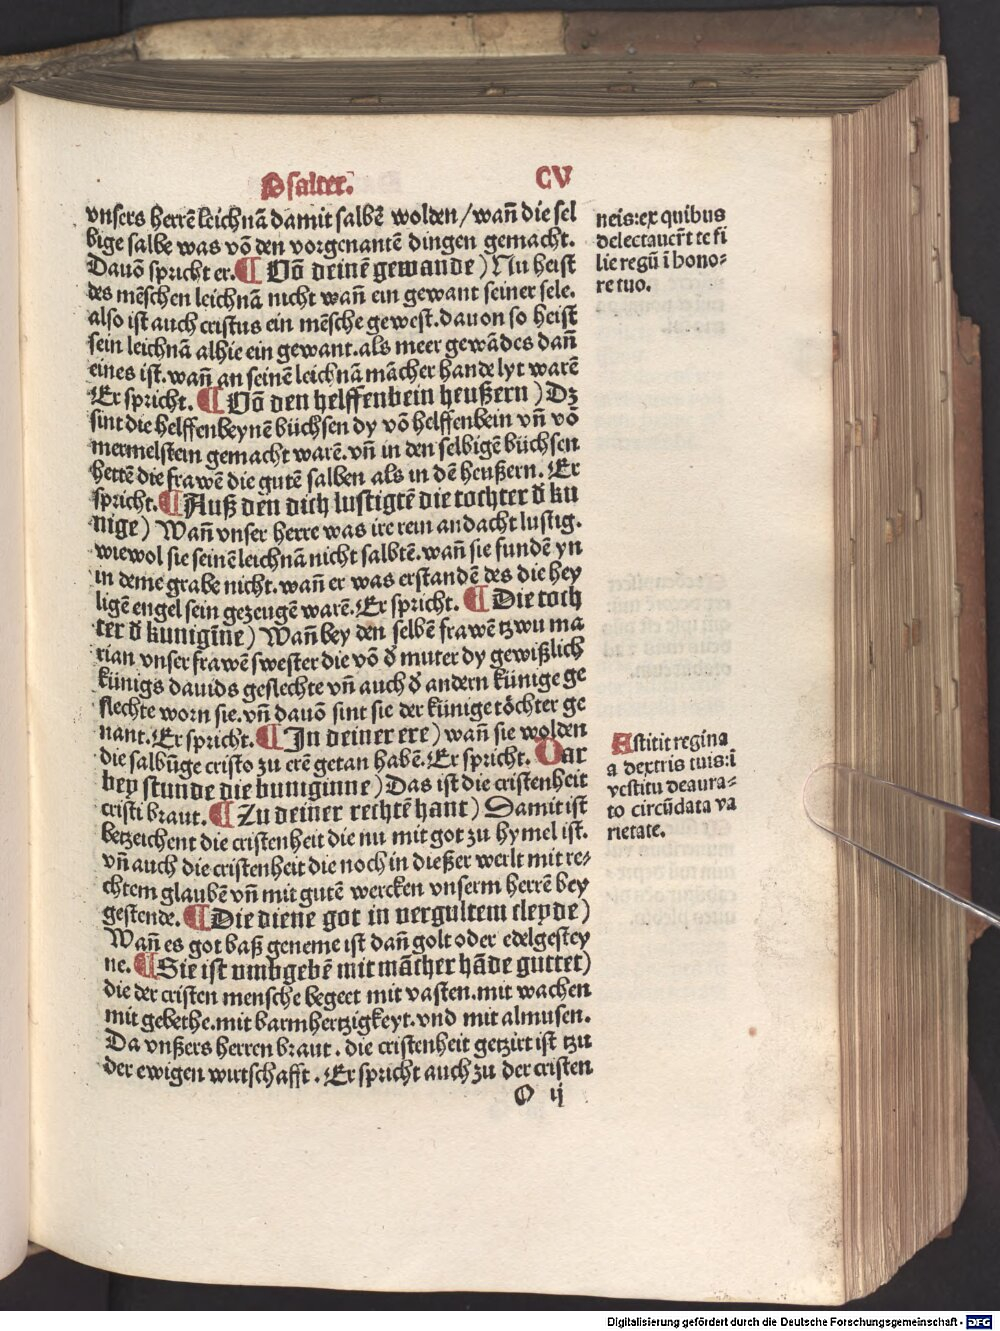 Psalter. CV
vnsers herrē leichnā damit salbē wolden/wañ die sel
bige salbe was vō den vorgenantē dingen gemacht.
Dauō spricht er. ¶ Uō deinē gewande) Nu heist
des mēschen leichnā nicht wañ ein gewant seiner sele.
also ist auch cristus ein mēsche gewest. dauon so heist
sein leichnā alhie ein gewant. als meer gewādes dañ
eines ist. wañ an seinē leichnā mācher hande lyt warē
Er spricht. ¶ Uō den helffenbein heußern) Dz
sint die helffenbeynē büchsen dy vō helffenbein vñ vō
mermelstein gemacht warē. vñ in den selbigē büchsen
hettē die frawē die gutē salben als in dē heußern. Er
spricht. ¶ Auß den dich lustigtē die tochter d̄ ku
nige) Wañ vnser herre was ire rein andacht lustig.
wiewol sie seinē leichnā nicht salbtē. wañ sie fundē yn
in deme grabe nicht. wañ er was erstandē des die hey
ligē engel sein gezeugē warē. Er spricht. ¶ Die toch
ter d̄ kunigīne) Wañ bey den selbē frawē tzwu ma
rian vnser frawē swester die vō d̄ muter dy gewißlich
künigs dauids geslechte vñ auch d̄ andern künige ge
slechte worn sie. vñ dauō sint sie der künige töchter ge
nant. Er spricht. ¶ In deiner ere) wañ sie wolden
die salbūge cristo zu erē getan habē. Er spricht. Dar
bey stunde die kuniginne) Das ist die cristenheit
cristi braut. ¶ Zu deiner rechtē hant) Damit ist
betzeichent die cristenheit die nu mit got zu hymel ist.
vñ auch die cristenheit die noch in dießer werlt mit re-
chtem glaubē vñ mit gutē wercken vnserm herrē bey
gestende. ¶ Die diene got in vergultem cleyde)
Wañ es got baß geneme ist dañ golt oder edelgestey
ne. ¶ Sie ist vmbgebē mit mācher hāde guttet)
die der cristen mensche begeet mit vasten. mit wachen
mit gebethe. mit barmhertzigkeyt. vnd mit almusen.
Da vnßers herren braut. die cristenheit getzirt ist tzu
der ewigen wirtschafft. Er spricht auch zu der cristen
O ij
neis: ex quibus
delectauer̄t te fi
lie regū ī hono-
re tuo.
Astitit regina
a dextris tuis: ī
vestitu deaura-
to circūdata va
rietate.
Digitalisierung gefördert durch die Deutsche Forschungsgemeinschaft - DFG